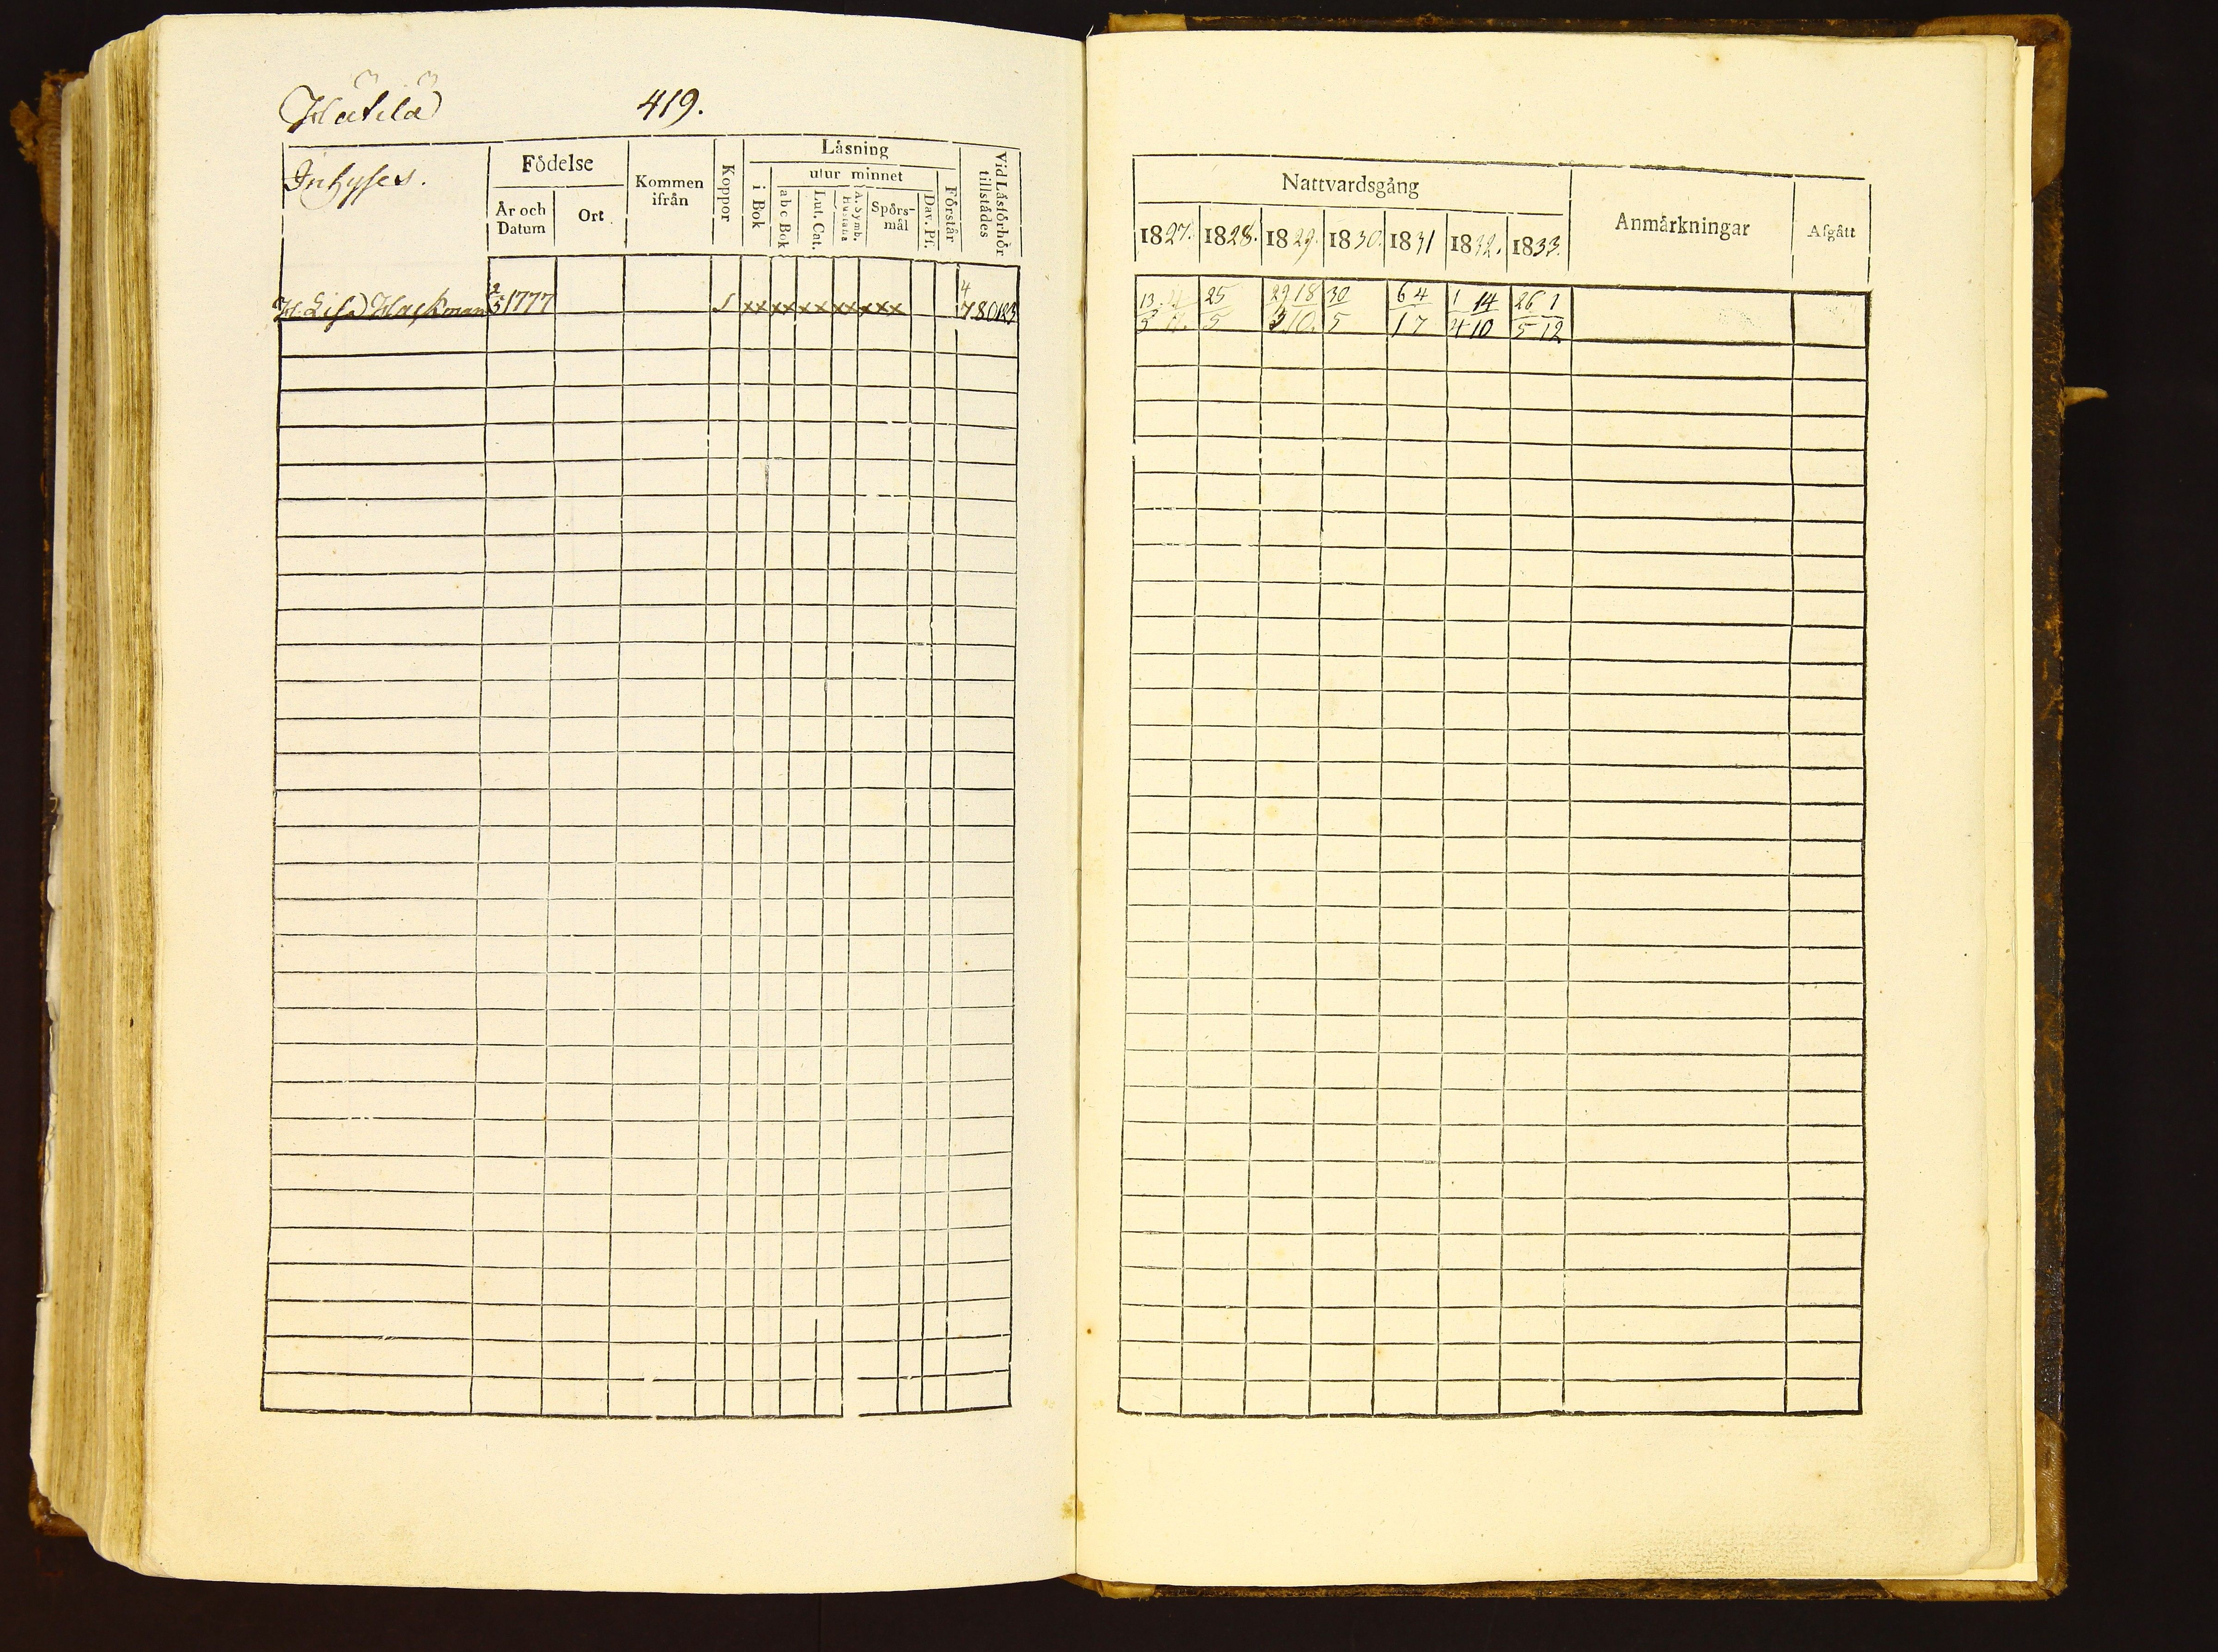 Hätilä 419.
Inhyses.
Födelse
År och Datum
Ort
Kommen ifrån
Koppor
Läsning
i Bok
utur minnet
abc Bok
Lut. Cat.
A. Symb. Hustafla
Spörsmål
Dav. Ps.
Förstår
Vid Läsförhör tillstådes
Nattvardsgång
1827. 1828. 1829. 1830. 1831 1832. 1833.
Anmärkningar
Afgått
H. Lisa Hackman 2/5 1777
xx xx xx xx xxx
4
7 8 0 1 2 3
13/5 25/5 29/3 18/10. 30/5 6/1 4/7 1/4 14/10 26/5 1/12